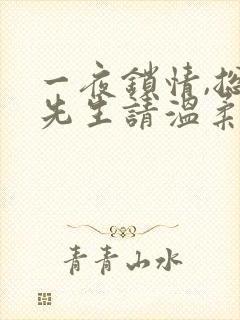 一夜鎖情,總
先生請溫柔
青青山水